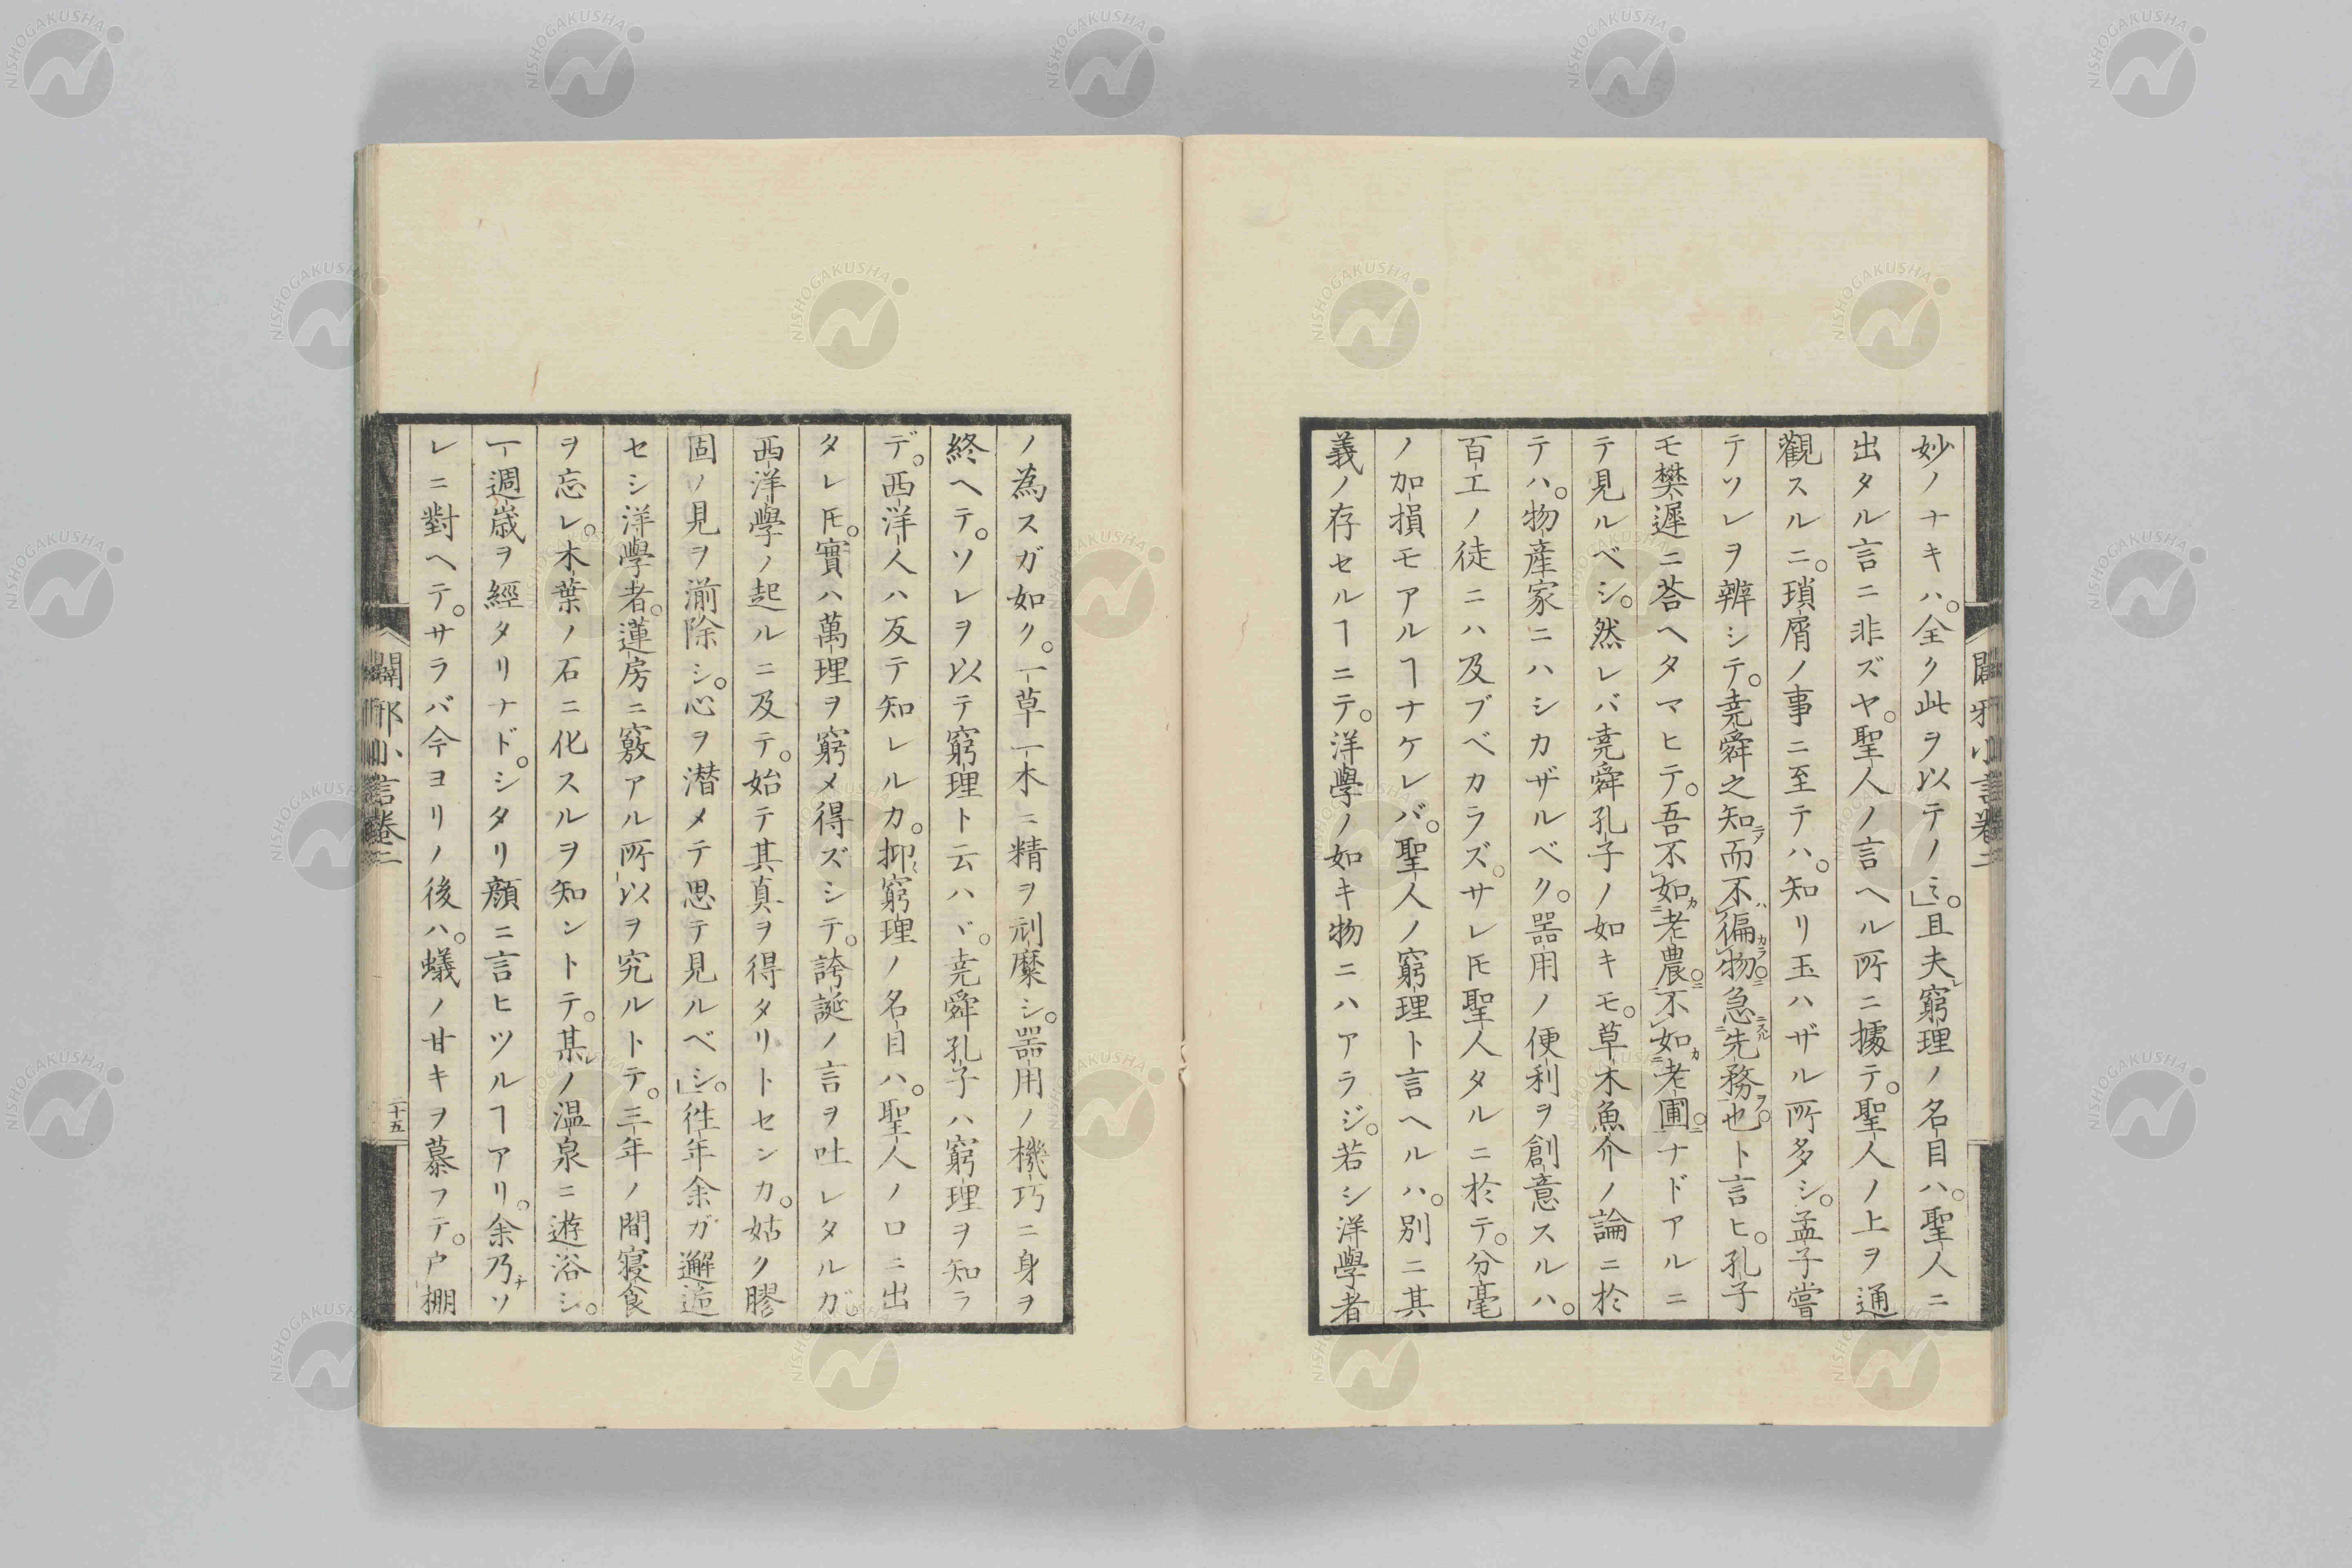 妙ノナキハ。全ク此ヲ以テノミ」。且夫窮理ノ名目ハ。聖人ニ
出タル言ニ非ズヤ。聖人ノ言ヘル所ニ據テ。聖人ノ上ヲ通
觀スルニ。瑣屑ノ事ニ至テハ。知リ玉ハザル所多シ。孟子嘗
テソレヲ辨シテ。堯舜之知而不徧物。急先務也ト言ヒ。孔子
モ樊遲ニ荅ヘタマヒテ。吾不如老農。不如老圃。ナドアルニ
テ見ルベシ。然レバ堯舜孔子ノ如キモ。草木魚介ノ論ニ於
テハ。物産家ニハシカザルベク。器用ノ便利ヲ創意スルハ。
百工ノ徒ニハ及ブベカラズ。サレ𪜈聖人タルニ於テ。分毫
ノ加損モアルヿナケレバ。聖人ノ窮理ト言ヘルハ。別ニ其
義ノ存セルヿニテ。洋學ノ如キ物ニハアラジ。若シ洋學者
ノ為スガ如ク。一草一木ニ精ヲ刓糜シ。器用ノ機巧ニ身ヲ
終ヘテ。ソレヲ以テ窮理ト云ハヾ。堯舜孔子ハ窮理ヲ知ラ
デ。西洋人ハ反テ知レルカ。抑窮理ノ名目ハ。聖人ノ口ニ出
タレ𪜈。實ハ萬理ヲ窮メ得ズシテ。誇誕ノ言ヲ吐レタルガ。
西洋學ノ起ルニ及テ。始テ其真ヲ得タリトセンカ。姑ク膠
固ノ見ヲ湔除シ。心ヲ潜メテ思テ見ルベシ」。徃年余ガ邂逅
セシ洋學者。蓮房ニ竅アル所以ヲ究ルトテ。三年ノ間寢食
ヲ忘レ。木葉ノ石ニ化スルヲ知ントテ。某ノ温泉ニ遊浴シ。
一週歳ヲ經タリナド。シタリ顔ニ言ヒツルヿアリ。余乃ソ
レニ對ヘテ。サラバ今ヨリノ後ハ。蟻ノ甘キヲ慕フテ。戸棚
闢邪小言卷二
二十五
闢邪小言卷二
NISHOGAKUSHA